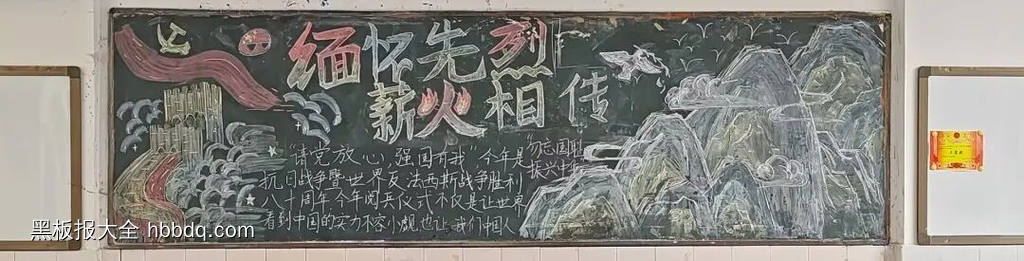 缅怀先烈
薪火相传
"请党放心,强国有我"今年是
抗日战争暨世界反法西斯战争胜利
八十周年今年阅兵仪式不仅是让世界
看到中国的实力不容小觑也让我们中国人
"勿忘国耻
振兴中华
黑板报大全 hbbdq.com